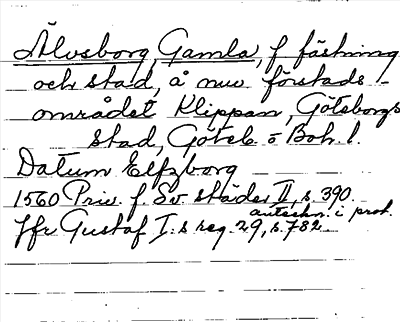 Älvsborg, Gamla, f fästning
och stad, å nuv förstads-
området Klippan, Göteborgs
stad, Göteb. o Boh. l.
Datum Elfzborg
1560 Priv. f. Sv. städer II, s. 390.
anteckn. i prot.
Jfr Gustaf I:s reg. 29, s. 782